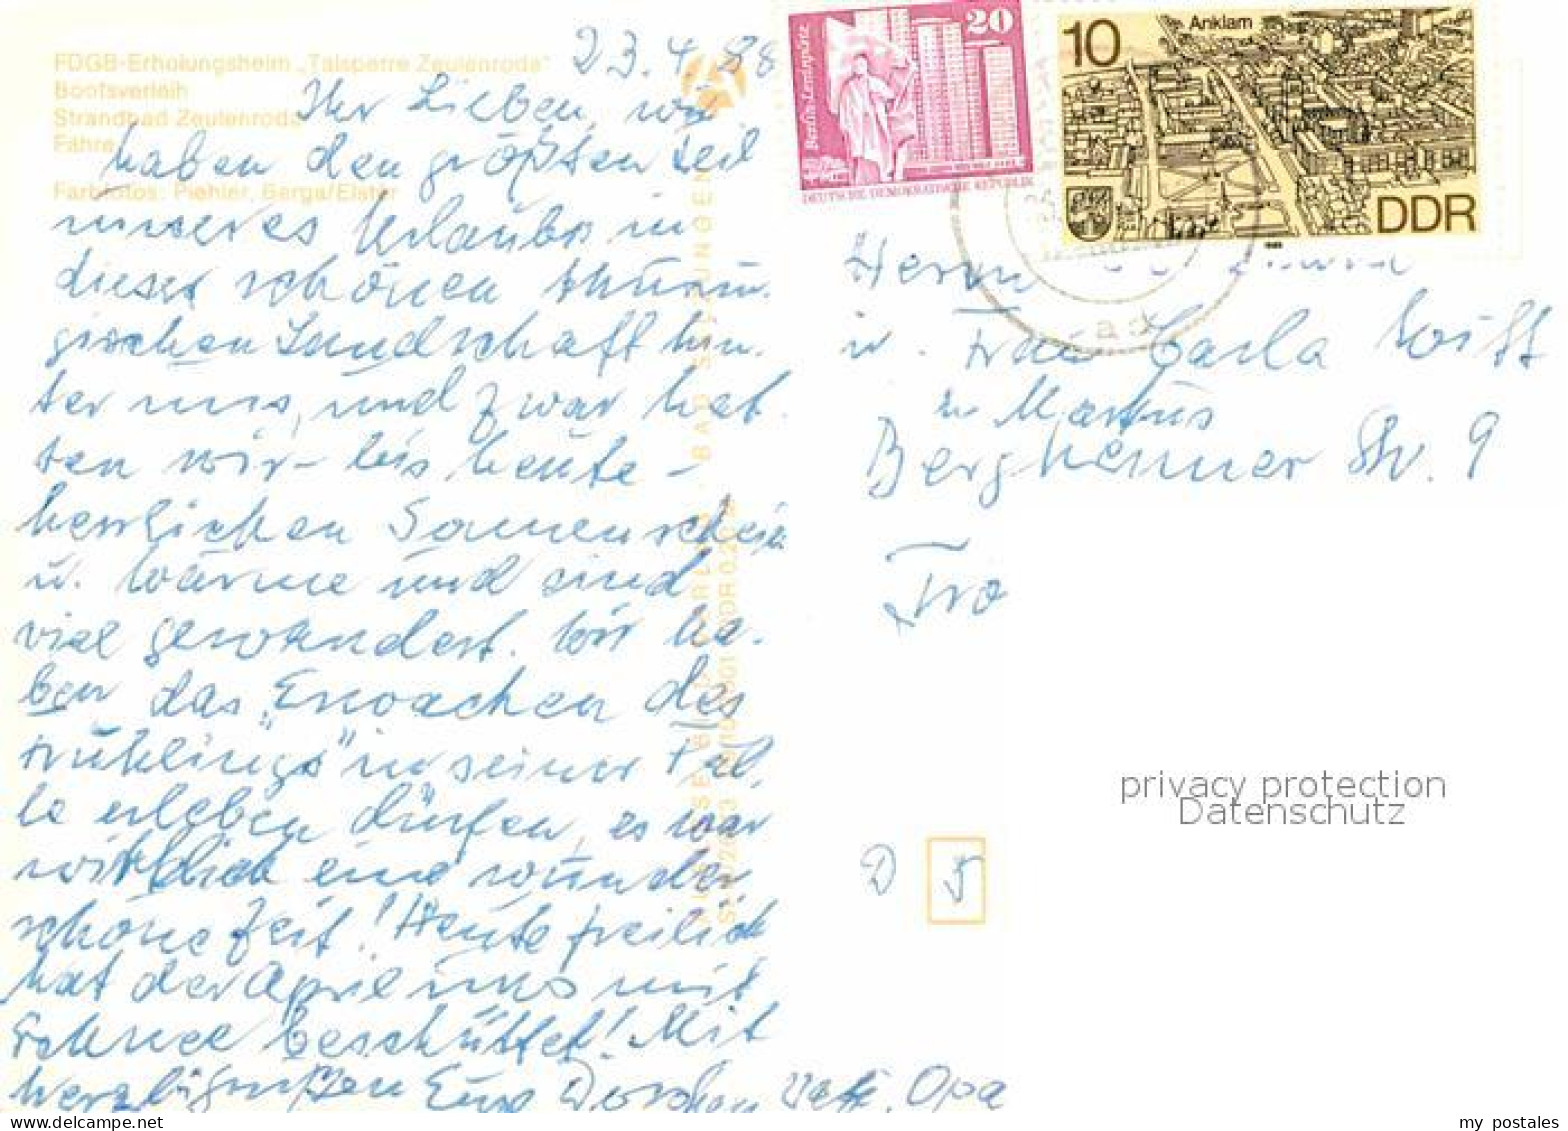 FDGB-Erholungsheim „Talsperre Zeulenroda"
Bootsverleih
Strandbad Zeulenroda
Fähre
Farbfotos: Piehler, Berga/Elster
23.4.88
Ihr Lieben, wir
haben den größten Teil
unseres Urlaubs in
dieser schönen thürin-
gischen Landschaft hin-
ter uns, und zwar hat-
ten wir – bis heute –
herrlichen Sonnenschein
u. Wärme und sind
viel gewandert. Wir ha-
ben das „Erwachen des
Frühlings" in seiner Fül-
le erleben dürfen, es war
wirklich eine wunder
schöne Zeit! Heute freilich
hat der April uns mit
Schnee beschüttet! Mit
herzl. Grüßen Eure Opa
BAD SALZUNGEN
20
Berlin, Leninplatz
DEUTSCHE DEMOKRATISCHE REPUBLIK
10
Anklam
DDR
Herrn
u. Frau Carla
u. Markus
Str. 9
D 5
privacy protection
Datenschutz
my postales